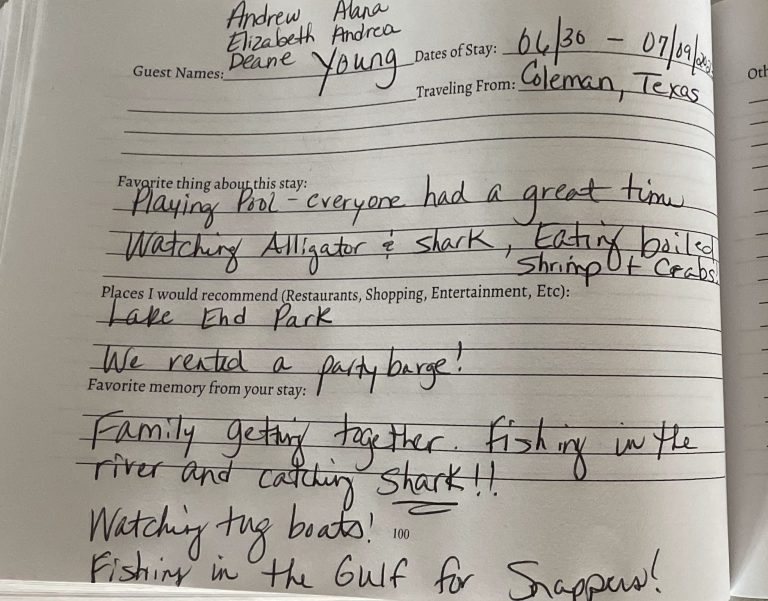 Andrew Alana
Elizabeth Andrea
Guest Names: Deane Young
Dates of Stay: 06/30 - 07/09/
Traveling From: Coleman, Texas
Favorite thing about this stay:
Playing Pool - everyone had a great time
Watching Alligator & shark, Eating boiled
Shrimp & Crabs
Places I would recommend (Restaurants, Shopping, Entertainment, Etc):
Lake End Park
We rented a party barge!
Favorite memory from your stay:
Family getting together. Fishing in the
river and catching Shark!!
Watching tug boats!
100
Fishing in the Gulf for Snappers!
Oth